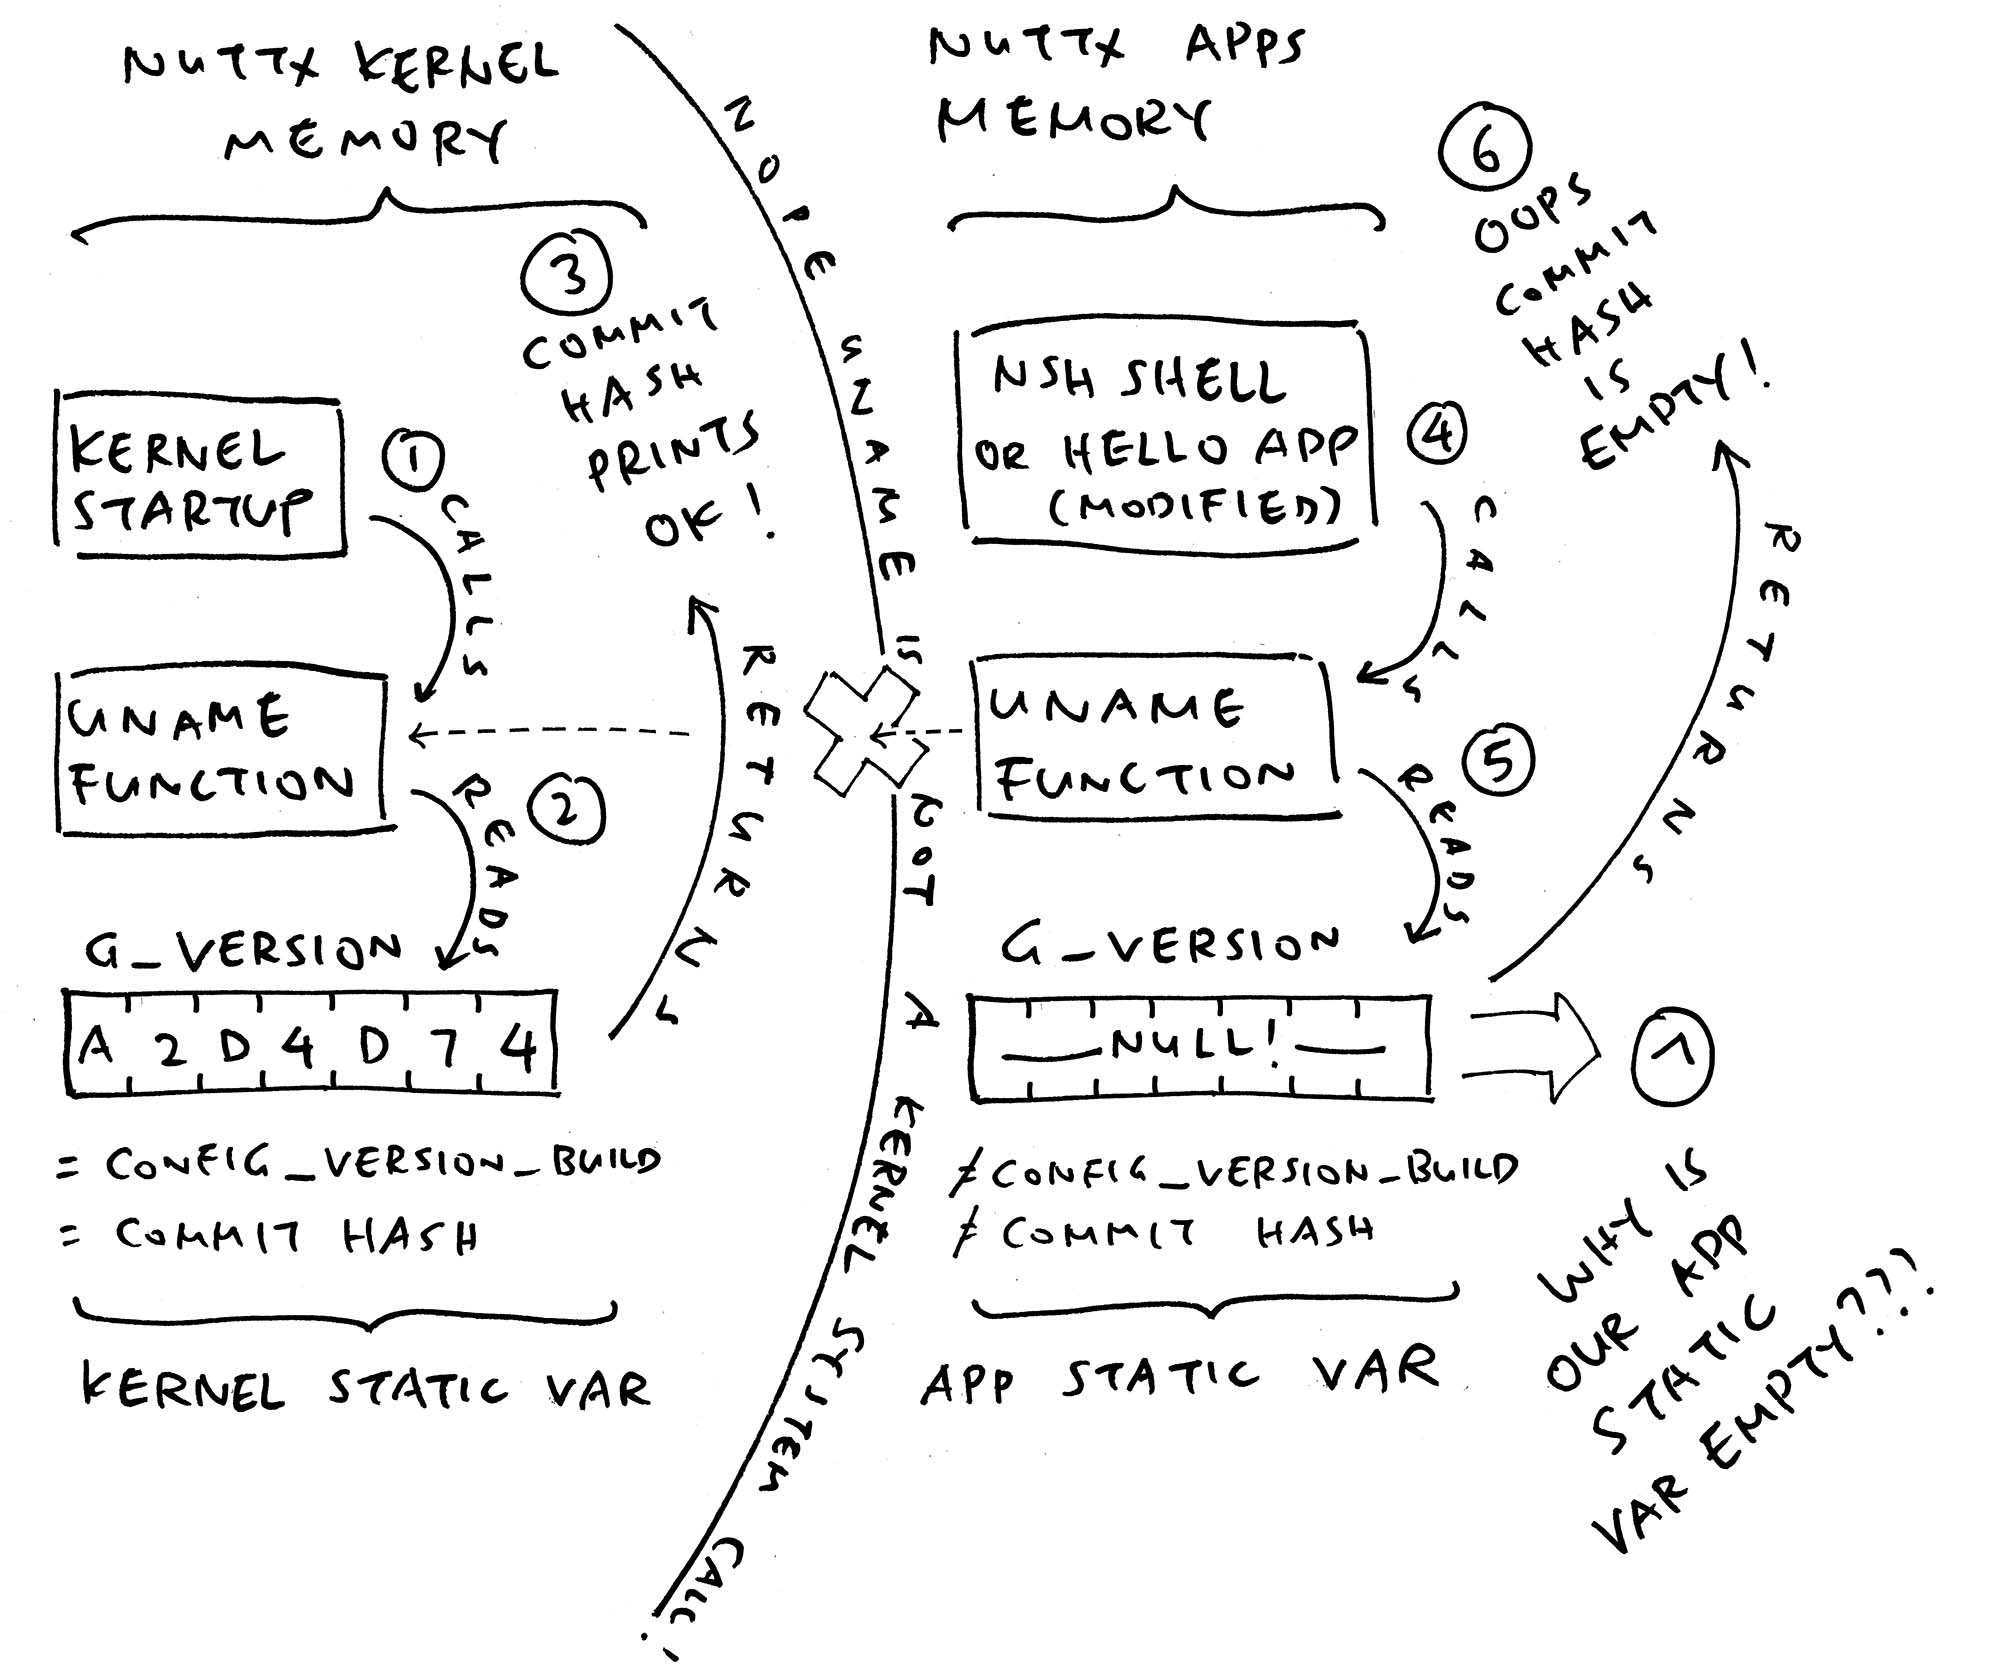 NUTTX KERNEL
MEMORY
3
COMMIT
HASH
PRINTS
OK!
KERNEL
STARTUP
1
CALLS
UNAME
FUNCTION
2
READS
G_VERSION
A 2 D 4 D 7 4
RETURNS
= CONFIG_VERSION_BUILD
= COMMIT HASH
KERNEL STATIC VAR
NOPE UNAME IS NOT A KERNEL SYSTEM CALL!
NUTTX APPS
MEMORY
NSH SHELL
OR HELLO APP
(MODIFIED)
4
CALLS
UNAME
FUNCTION
5
READS
G_VERSION
NULL!
RETURNS
6
OOPS
COMMIT
HASH
IS
EMPTY!
≠ CONFIG_VERSION_BUILD
≠ COMMIT HASH
APP STATIC VAR
7
WHY IS
OUR APP
STATIC
VAR EMPTY???